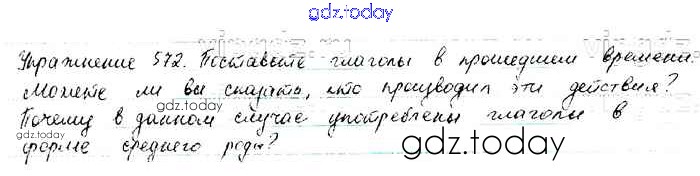 gdz.today
Упражнение 572. Поставьте глаголы в прошедшем времени.
Можете ли вы сказать, кто производил эти действия?
gdz.today
Почему в данном случае употреблены глаголы в
gdz.today
форме среднего рода?
gdz.today